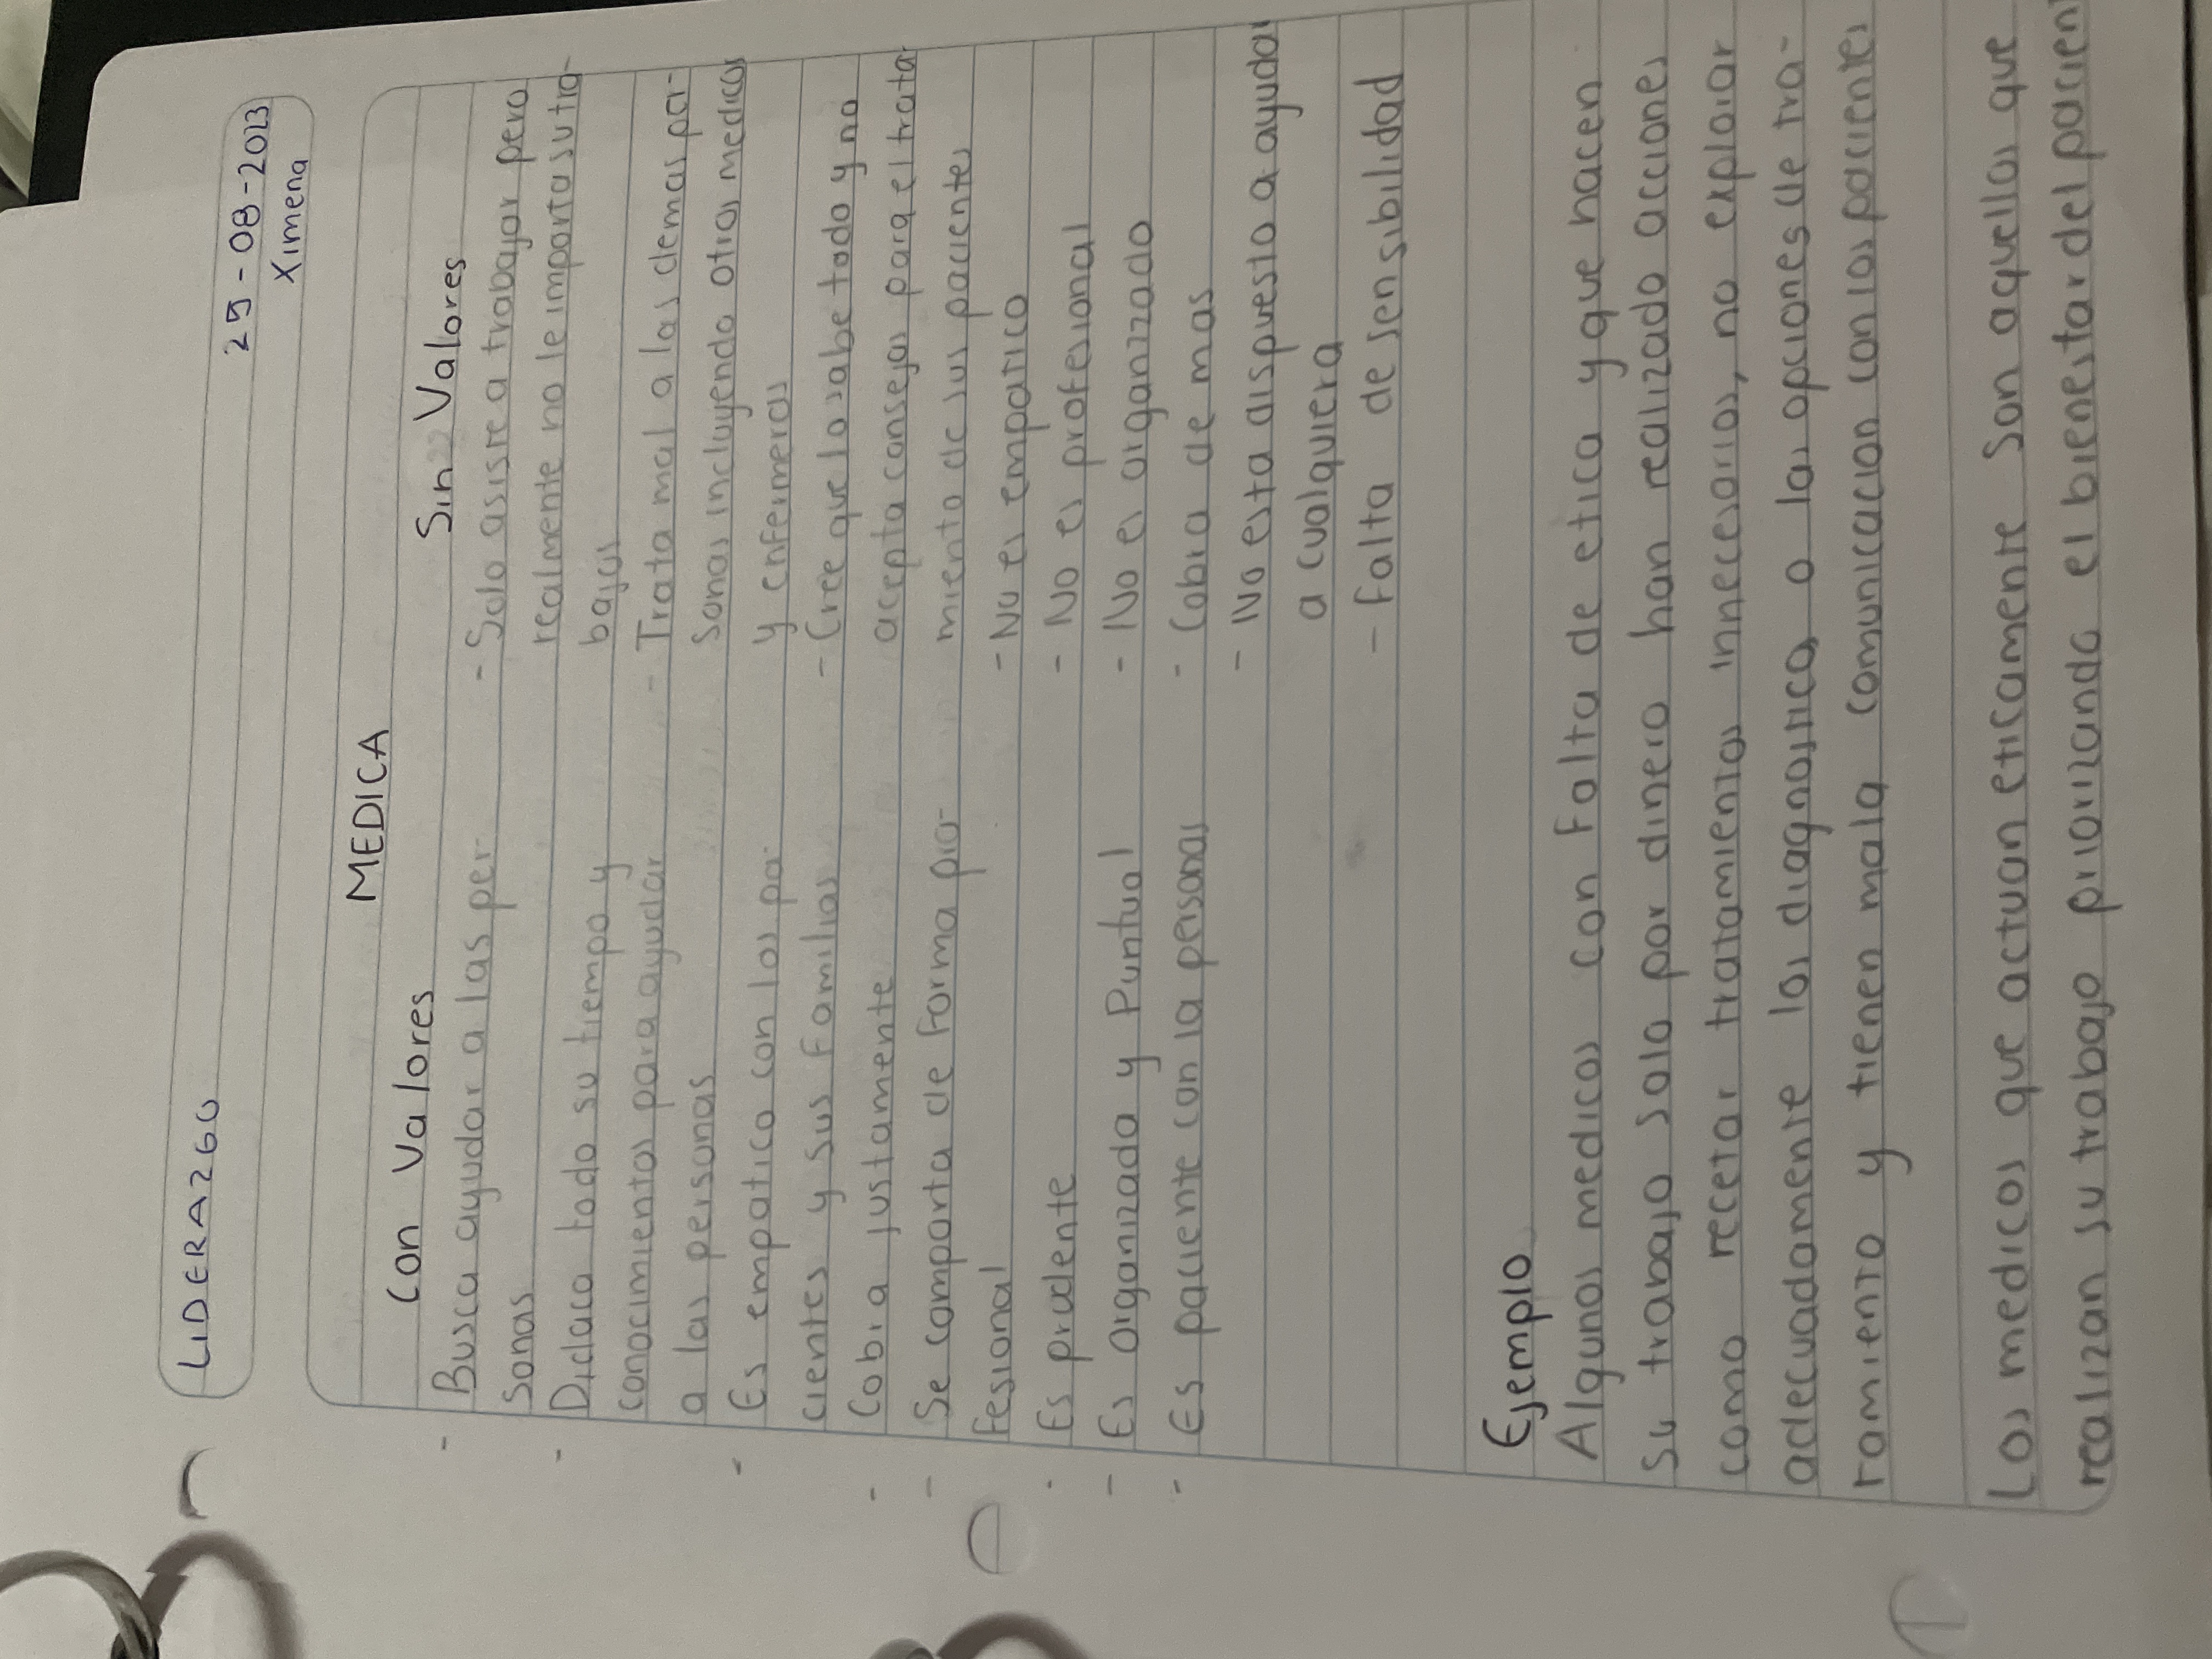 LIDERAZGO
29-08-2023
Ximena
MEDICA
Con Valores
- Busca ayudar a las per-
sonas
- Didaca todo su tiempo y
conocimientos para ayudar
a las personas
- Es empatico con los pa-
cientes y sus familias
- Cobra justamente
- Se comporta de forma pro-
fesional
- Es prudente
- Es organizado y Puntual
- Es paciente con la personas
Sin Valores
- Solo asiste a trabajar pero
realmente no le importa su tra-
bajos
- Trata mal a las demas per-
sonas incluyendo otros medicos
y enfermeras
- Cree que lo sabe todo y no
acepta consejos para el trata
miento de sus pacientes
- No es empatico
- No es profesional
- No es organizado
- Cobra de mas
- No esta dispuesto a ayudar
a cualquiera
- Falta de sensibilidad
Ejemplo
Algunos medicos con falta de etica y que hacen
su trabajo solo por dinero han realizado acciones
como recetar tratamientos innecesarios, no explorar
adecuadamente los diagnosticos o las opciones de tra-
tamiento y tienen mala comunicacion con los pacientes
Los medicos que actuan eticamente son aquellos que
realizan su trabajo priorizando el bienestar del pacien